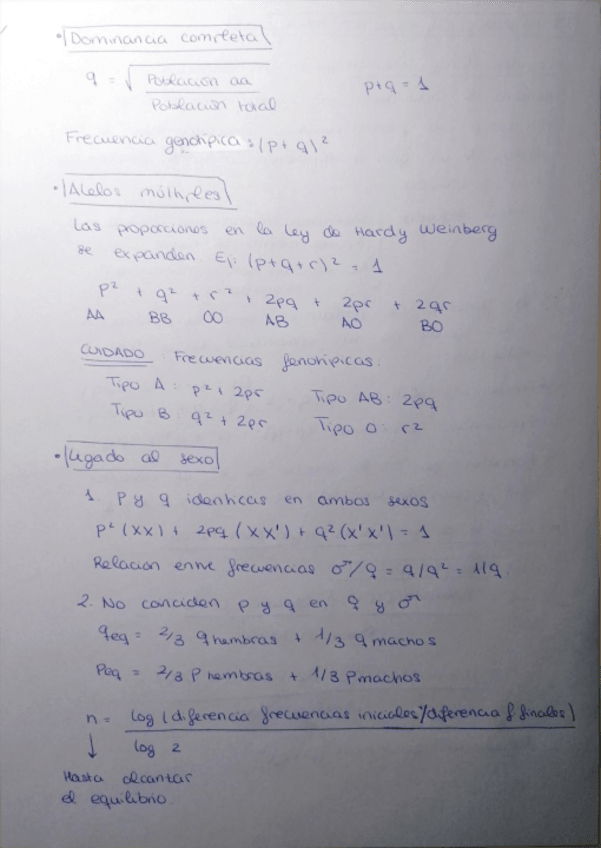 • Dominancia completa
q = √ Población aa / Población total    p+q = 1
Frecuencia genotípica: (p+q)²
• Alelos múltiples
Las proporciones en la Ley de Hardy Weinberg
se expanden. Ej: (p+q+r)² = 1
p² + q² + r² + 2pq + 2pr + 2qr
AA BB OO AB AO BO
CUIDADO Frecuencias fenotípicas.
Tipo A: p² + 2pr    Tipo AB: 2pq
Tipo B: q² + 2pr    Tipo O: r²
• Ligado al sexo
1. p y q idénticas en ambos sexos
p² (XX) + 2pq (XX') + q² (X'X') = 1
Relación entre frecuencias ♂/♀ = q/q² = 1/q.
2. No coinciden p y q en ♀ y ♂
qeq = 2/3 q hembras + 1/3 q machos
Peq = 2/3 P hembras + 1/3 P machos
n = log (diferencia frecuencias iniciales/diferencia f finales)
↓ log 2
Hasta alcanzar
el equilibrio.